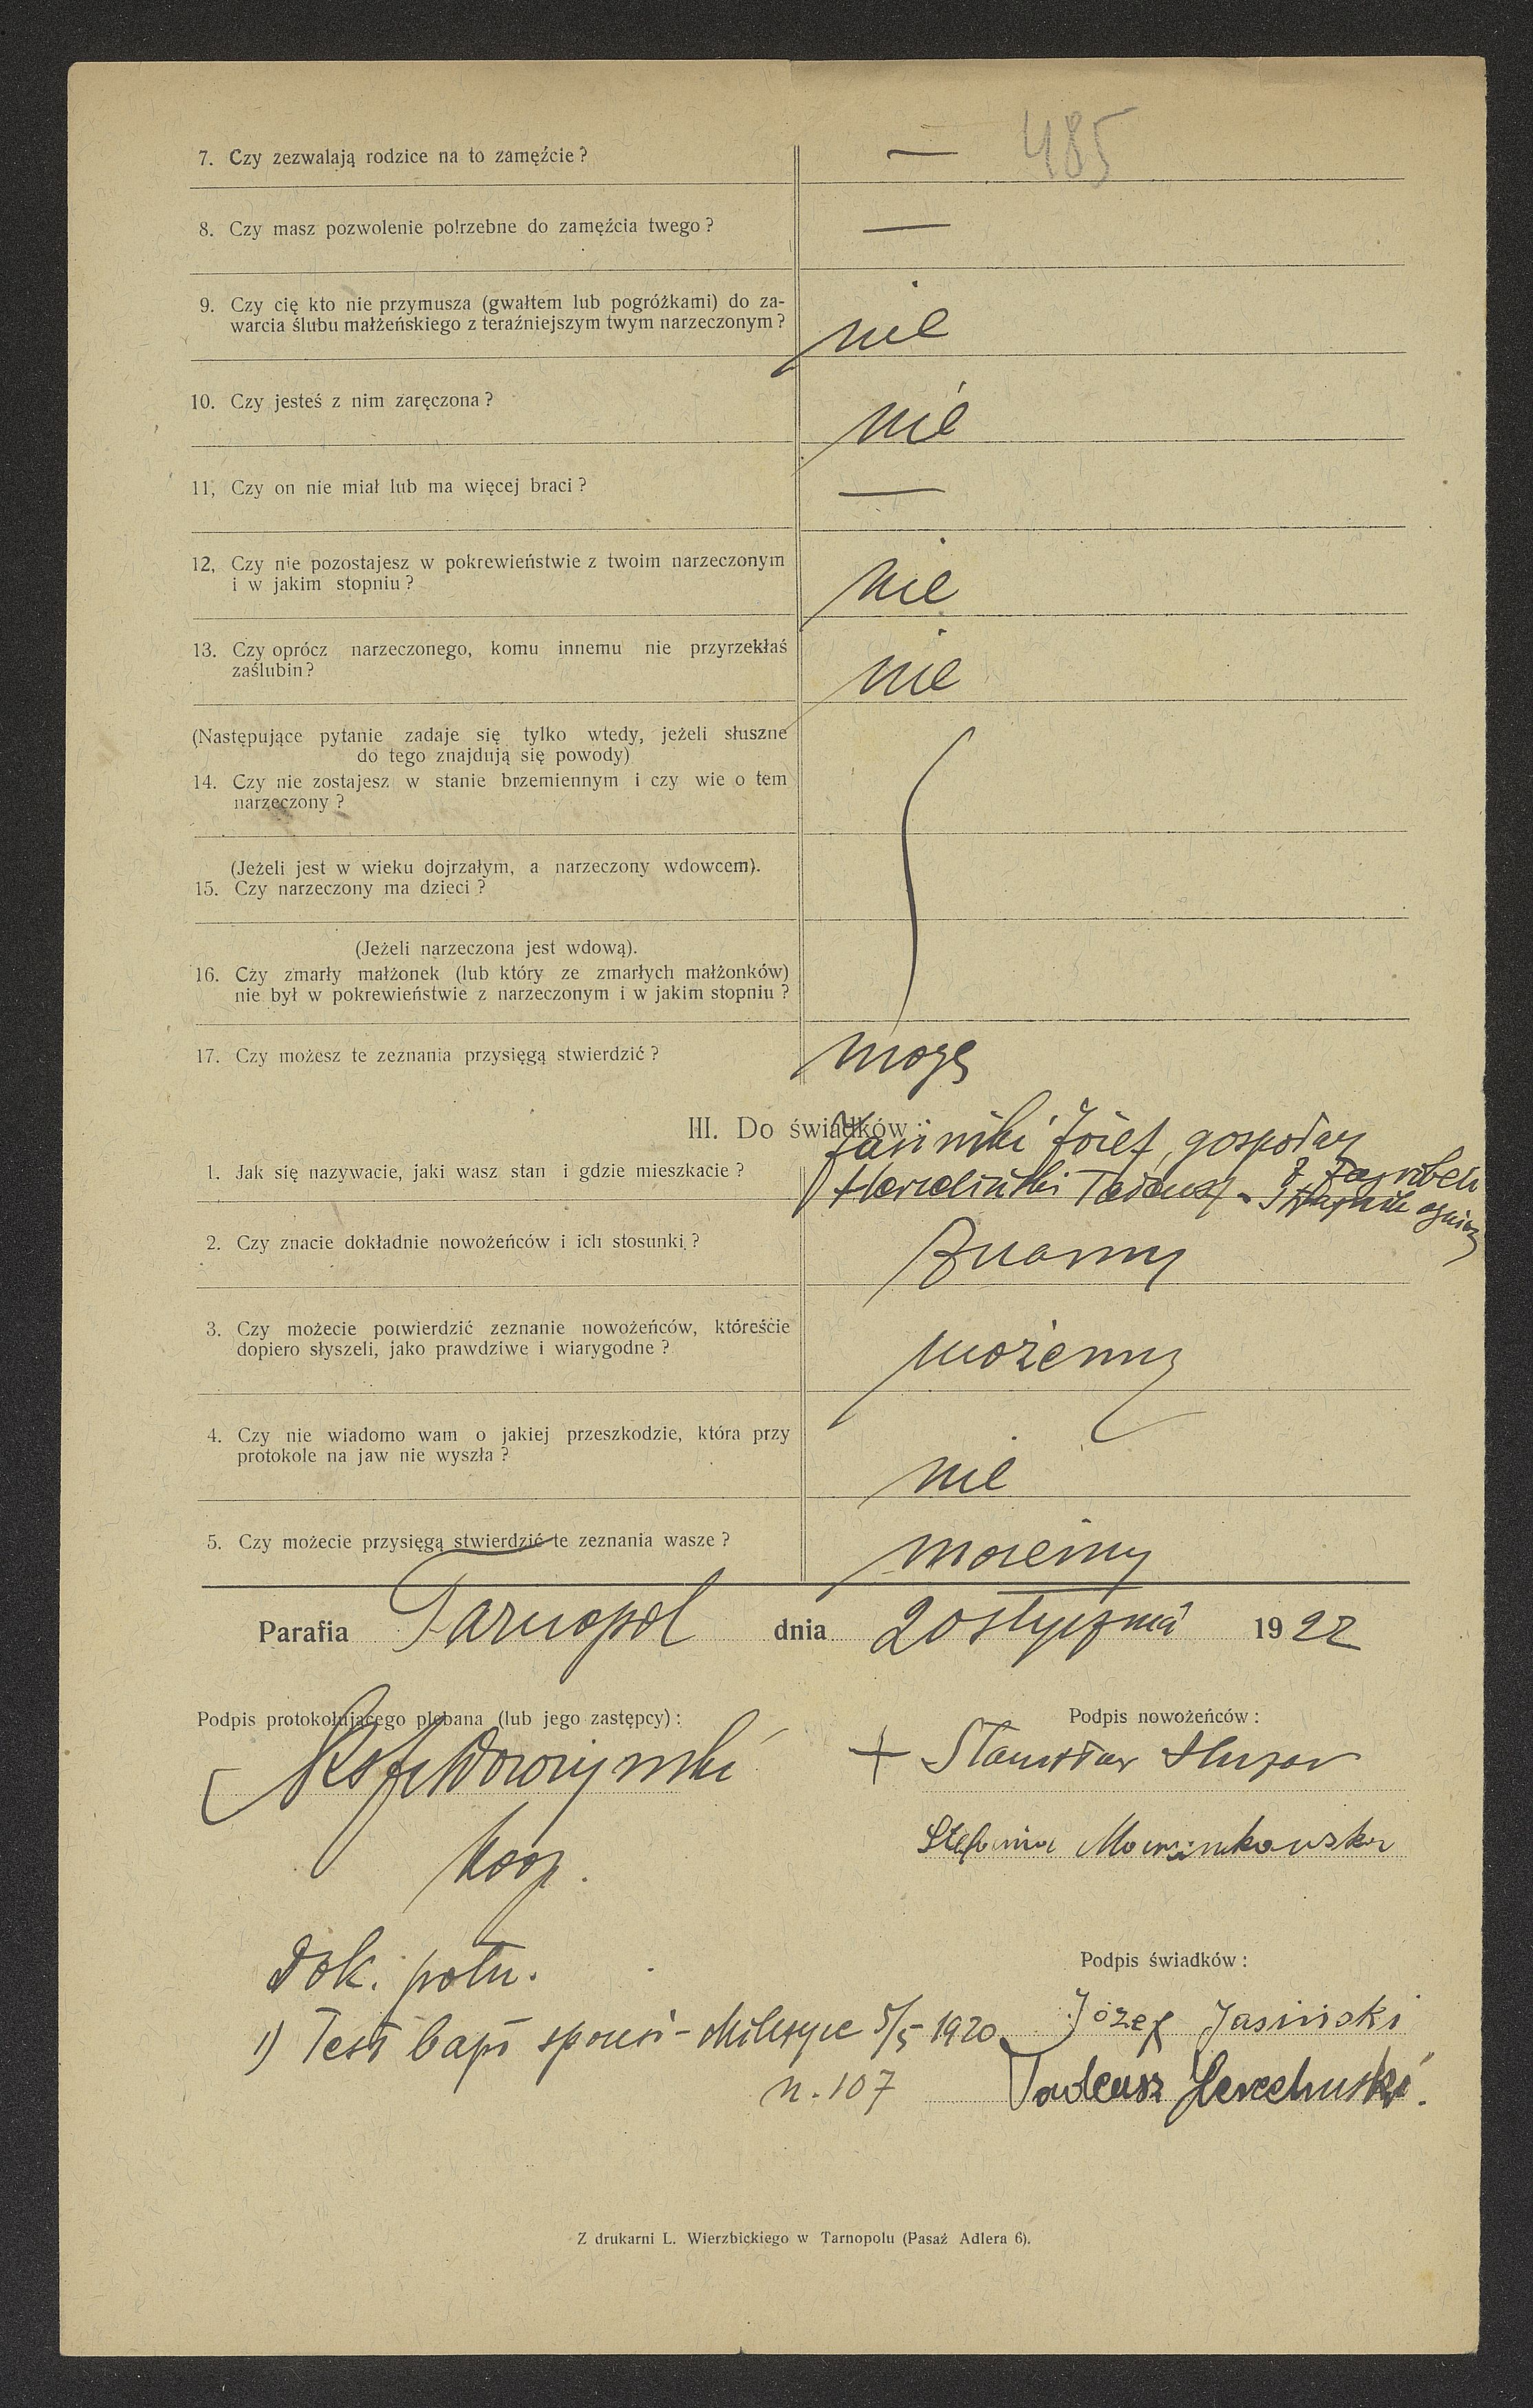 485
7. Czy zezwalają rodzice na to zamęźcie? —
8. Czy masz pozwolenie potrzebne do zamęźcia twego? —
9. Czy cię kto nie przymusza (gwałtem lub pogróżkami) do za-
warcia ślubu małżeńskiego z teraźniejszym twym narzeczonym? nie
10. Czy jesteś z nim zaręczona? nie
11, Czy on nie miał lub ma więcej braci? —
12, Czy nie pozostajesz w pokrewieństwie z twoim narzeczonym
i w jakim stopniu? nie
13. Czy oprócz narzeczonego, komu innemu nie przyrzekłaś
zaślubin? nie
(Następujące pytanie zadaje się tylko wtedy, jeżeli słuszne
do tego znajdują się powody)
14. Czy nie zostajesz w stanie brzemiennym i czy wie o tem
narzeczony?
(Jeżeli jest w wieku dojrzałym, a narzeczony wdowcem).
15. Czy narzeczony ma dzieci?
(Jeżeli narzeczona jest wdową).
16. Czy zmarły małżonek (lub który ze zmarłych małżonków)
nie był w pokrewieństwie z narzeczonym i w jakim stopniu?
17. Czy możesz te zeznania przysięgą stwierdzić? mogę
III. Do świadków:
Jasiński Józef, gospodarz
z Zagrobeli
1. Jak się nazywacie, jaki wasz stan i gdzie mieszkacie? Tadeusz
2. Czy znacie dokładnie nowożeńców i ich stosunki? Znamy
3. Czy możecie potwierdzić zeznanie nowożeńców, któreście
dopiero słyszeli, jako prawdziwe i wiarygodne? możemy
4. Czy nie wiadomo wam o jakiej przeszkodzie, która przy
protokole na jaw nie wyszła? nie
5. Czy możecie przysięgą stwierdzić te zeznania wasze? możemy
Parafia Tarnopol dnia 20 stycznia 1922
Podpis protokołującego plebana (lub jego zastępcy):
Podpis nowożeńców:
+ Stanisław
Stefania Marcinkowska
koop.
Dok. potw.
Podpis świadków:
1) Test bapt sponsi - 5/5 1920
n. 107
Józef Jasiński
Tadeusz
Z drukarni L. Wierzbickiego w Tarnopolu (Pasaż Adlera 6).